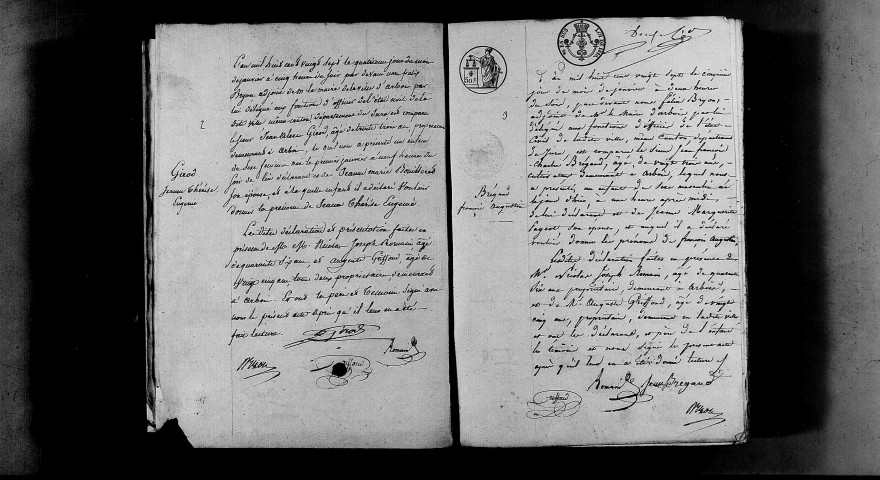 L'an mil huit cent vingt sept le quatrieme jour du mois
de janvier à cinq heures du soir par devant nous felix
Bryon adjoint de Mr le maire de la ville d'arbois par
lui délégué aux fonctions d'officier de l'état civil de la
dite ville même canton, département du Jura est comparu
le sieur Jean Alexis Girod, âgé de trente trois ans propriétaire
demeurant à Arbois, lequel nous a présenté un enfant
du sexe feminin née le premier janvier à neuf heures du
soir de lui déclarant et de Jeanne marie
son épouse, et à laquelle enfant il a déclaré vouloir
donner les prénoms de Jeanne Thérèse Eugenie
Les dites déclaration et présentation faites en
présence de M. M. Nicolas Joseph Romain âgé
de quarante six ans et Auguste Griffond, âgé de
vingt cinq ans, tous deux propriétaires demeurant
à Arbois. Et ont les père et témoins signé avec
nous le présent acte après qu'il leur en a été
fait lecture.
2
Girod
Jeanne Thérèse
Eugenie
Girod
Romain
Griffond
Bryon
50 c
L'an mil huit cent vingt sept le cinquième
jour du mois de janvier à deux heures
du soir, par devant nous félix Bryon,
adjoint de Mr le Maire d'arbois par lui
délégué aux fonctions d'officier de l'état
civil de ladite ville, même Canton, département
du Jura, est comparu le Sieur Jean françois
Charles Brégand, âgé de vingt trois ans,
cultivateur demeurant à Arbois, lequel nous
a présenté un enfant du sexe masculin né
aujourd'hui, à une heure après midi,
de lui déclarant et de Jeanne Marguerite
son épouse, et auquel il a déclaré
vouloir donner les prénoms de françois Augustin
Lesdites déclaration faites en présence de
Mr Nicolas Joseph Romain, âgé de quarante
six ans propriétaire, demeurant à Arbois,
et de Mr Auguste Griffond, âgé de vingt
cinq ans, propriétaire, demeurant en ladite ville
et ont le déclarant, et père de l'enfant
les témoins et nous signé le présent acte
après qu'il leur en a été donné lecture
3
Brégand
françois Augustin
Romain
Jean Bregand
Griffond
Bryon